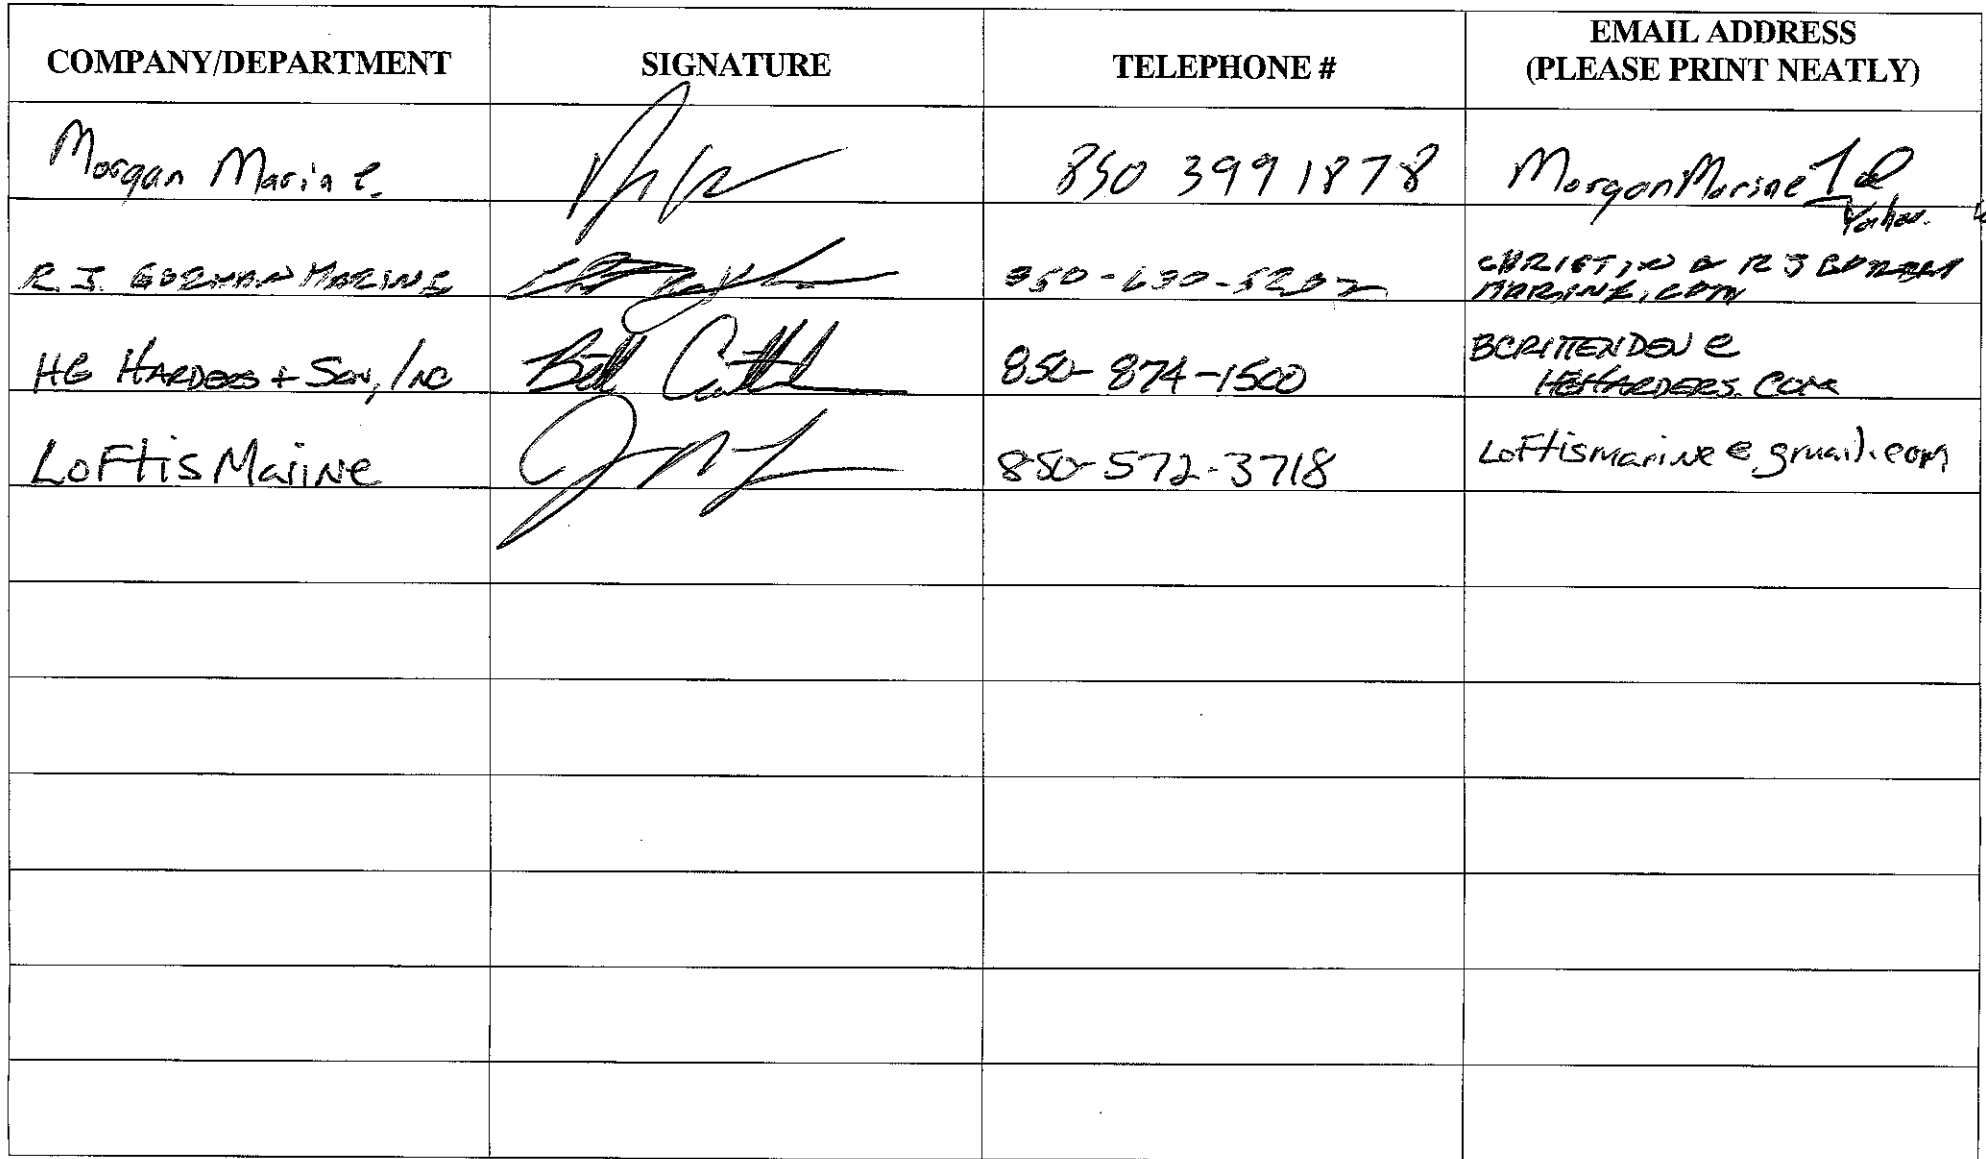 COMPANY/DEPARTMENT SIGNATURE TELEPHONE # EMAIL ADDRESS
(PLEASE PRINT NEATLY)
Morgan Marine 850 399 1878 MorganMarine1@
Yahoo.
R.J. GORMAN MARINE 850-630-5202 CHRISTIN @ RJGORMAN
MARINE.COM
HG HARDERS + SON, INC 850-874-1500 BCRITTENDEN @
HGHARDERS.COM
LoFtis MariNe 850-572-3718 LoFtismariNe@gmail.com